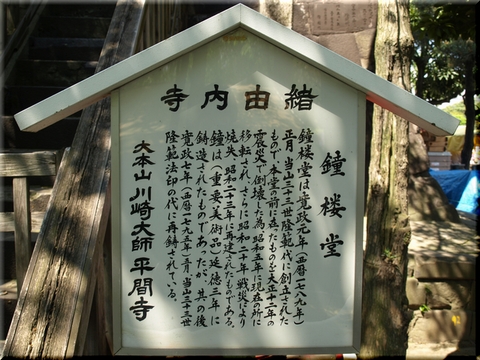 寺内由緒
鐘楼堂
鐘楼堂は寛政元年(西暦一七八九年)
正月、当山三十三世隆範代に創立された
もので、本堂の前に在ったものを大正十二年の
震災で倒壊した為、昭和五年に現在の所に
移転され、さらに昭和二十年戦災により
焼失、昭和二十三年に再建されたものである。
鐘は(重要美術品)延徳三年に
鋳造されたものであったが、其の後
寛政七年(西暦一七九五年)五月、当山三十三世
隆範法印の代に再鋳されている。
大本山川崎大師平間寺